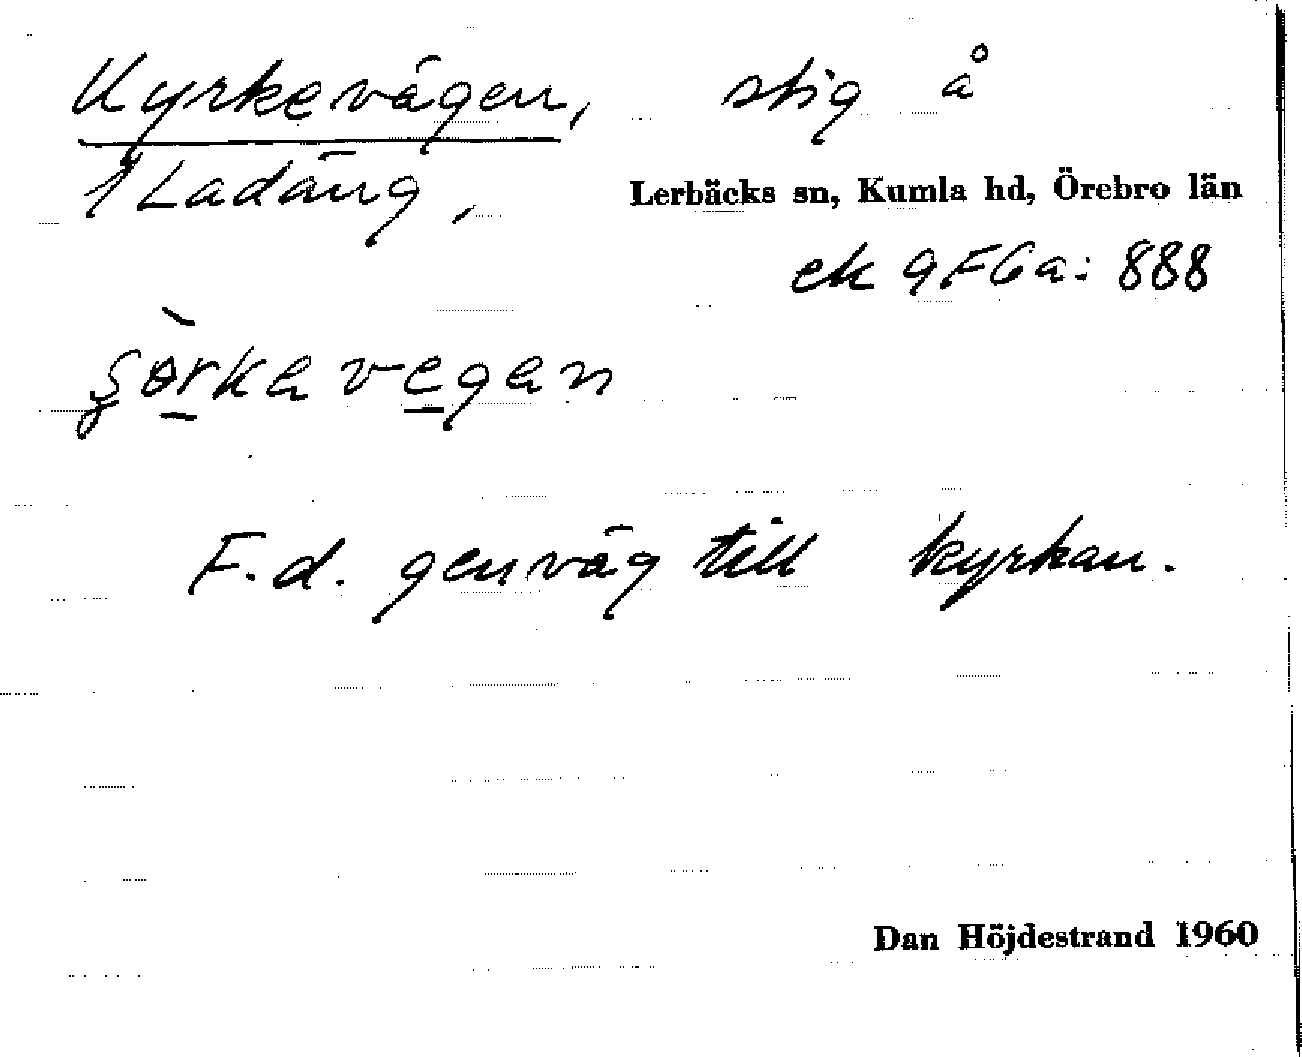 Kyrkevägen, stig å
1 Ladäng,
Lerbäcks sn, Kumla hd, Örebro län
ek 9F6a: 888
F. d. genväg till kyrkan.
Dan Höjdestrand 1960